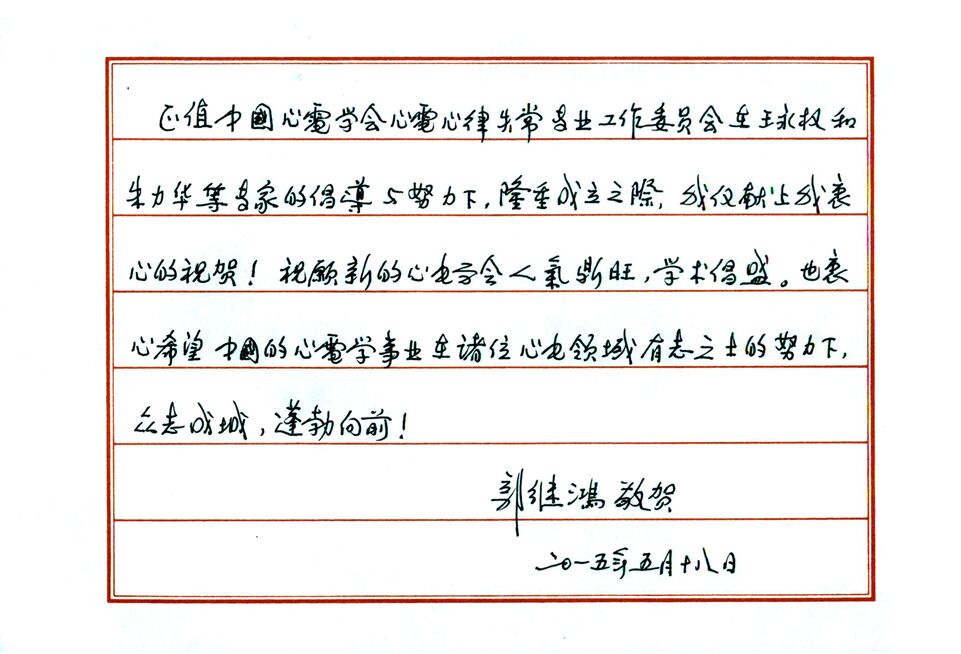 正值中國心電学会心電心律失常专业工作委员会在王永权和
朱力华等专家的倡導与努力下，隆重成立之際，我仅献上我衷
心的祝贺！祝願新的心电学会人氣鼎旺，学术倡盛。也衷
心希望中國的心電学事业在诸位心电领域有志之士的努力下，
众志成城，蓬勃向前！
郭继鴻敬贺
二〇一五年五月十八日